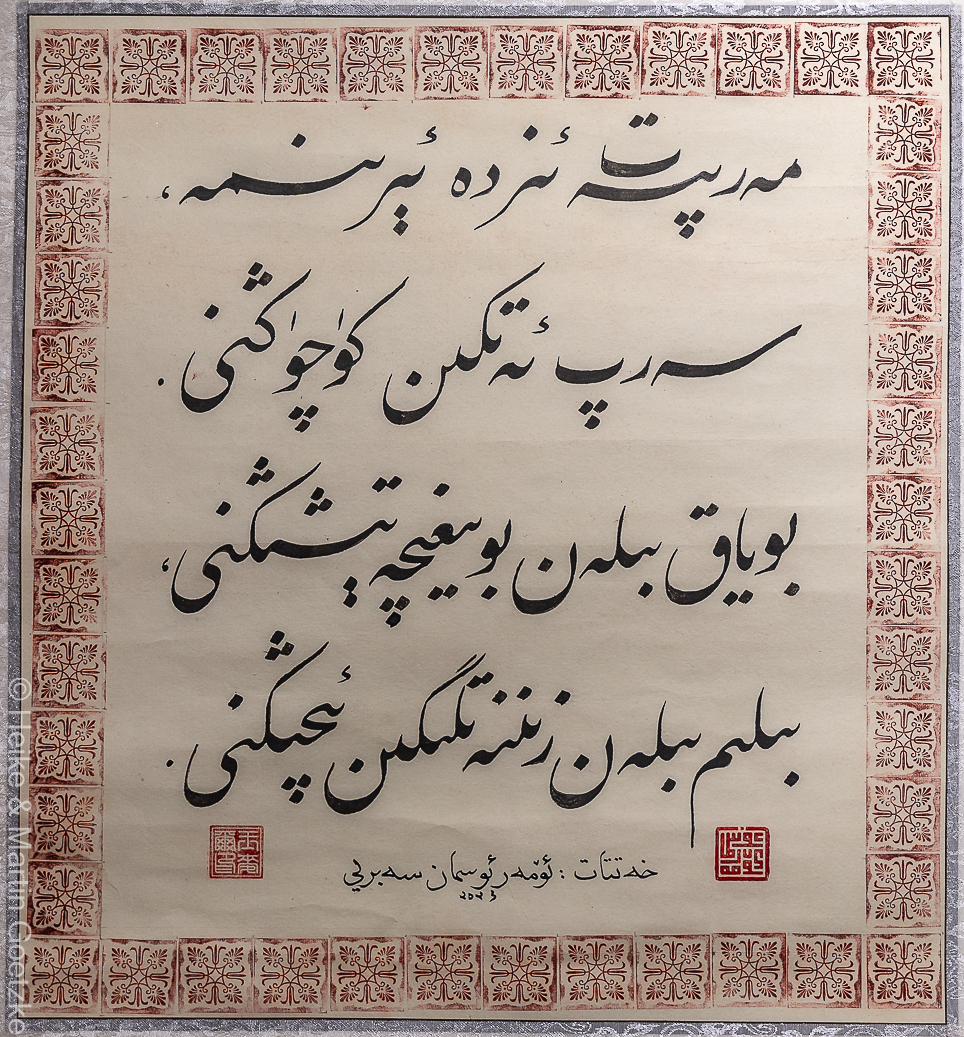 مەرىپەت ئىزدە ئېرىنمە،
سەرپ ئەتكىن كۈچۈڭنى.
بوياق بىلەن بويىغىچە تېشىڭنى،
بىلىم بىلەن زىننەتلىگىن ئىچىڭنى.
خەتتات: ئۆمەر ئوسمان سەبرىي
© Heike & Martin Goetzke